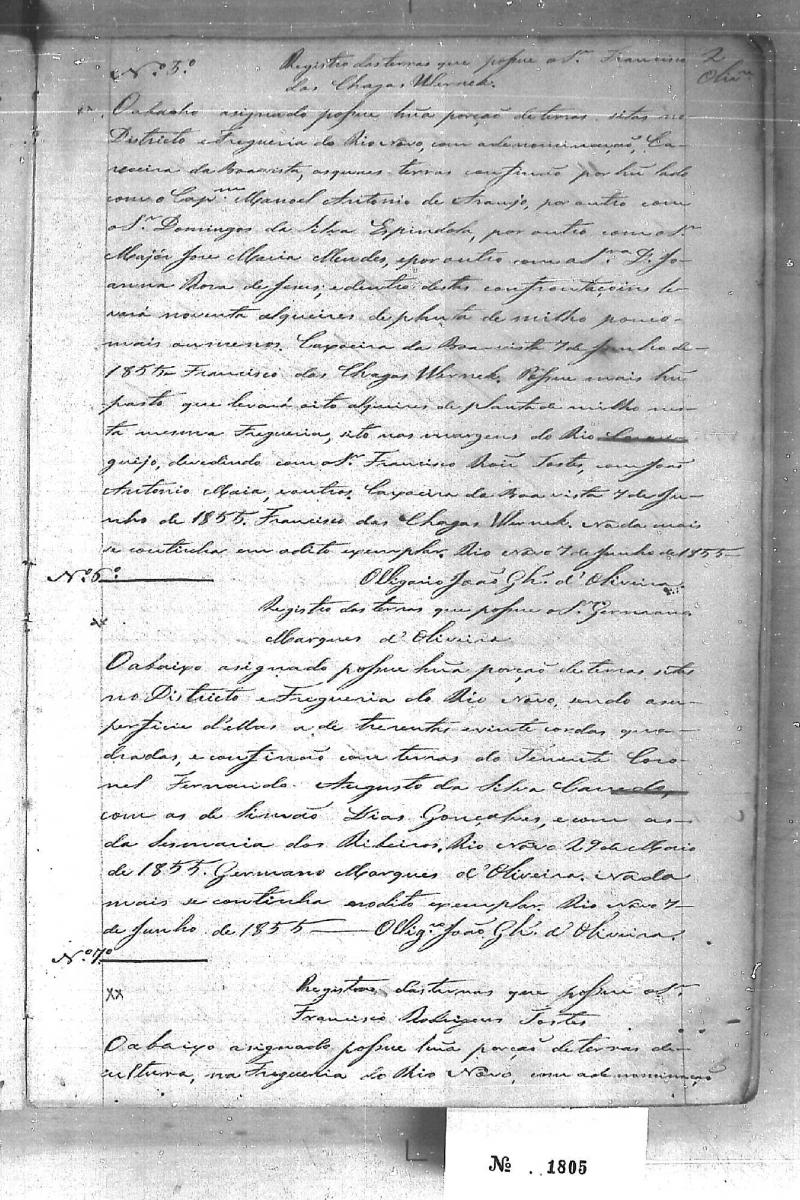 2
Oliv.ra
N.º 5.º
Registro das terras que possue o S.r Francisco
das Chagas Wernek.
O abacho asignado possue hũa porção de terras sitas no
Districto e Fregueria do Rio Novo, com a denominação, Ca-
xoeira da Boa vista, as quaes terras confinão por hũ lado
com o Cap.m Manoel Antonio de Araujo, por outro com
o S.r Domingos da Silva Espindola, por outro com o S.r
Majór Jose Maria Mendes, e por outro com a S.ra D. Jo-
anna Roza de Jesus, e dentro destas confrontaçoins le-
vará noventa alqueires de planta de milho pouco
mais ou menos. Caxoeira da Boa vista 7 de Junho de
1855 Francisco das Chagas Wernek. Possue mais hũ
pasto que levará oito alqueires de planta de milho nes-
ta mesma Fregueria, sito nas margens do Rio
guejo, devedindo com o S.r Francisco Roiz Tostes, com João
Antonio Maia, e outros. Caxoeira da Boa vista 7 de Ju-
nho de 1855. Francisco das Chagas Wernek. Nada mais
se continha em o dito exemplar. Rio Novo 7 de Junho de 1855
Olligario João Gh.e d'Oliveira.
N.º 6.º
Registro das terras que possue o S.r Germano
Marques d'Oliveira
O abaixo asignado possue hũa porção de terras sitas
no Districto e Fregueria do Rio Novo, sendo a su-
perficie d'ellas a de trezentas e vinte cordas qua-
dradas, e confinão com terras do Tenente Coro-
nel Fernando Augusto da Silva Canedo,
com as de Simão Dias Gonçalves, e com as
da Sesmaria dos Ribeiros. Rio Novo 29 de Maio
de 1855. Germano Marques d'Oliveira. Nada
mais se continha no dito exemplar. Rio Novo 7
de Junho de 1855 — Ollig.ro João Gh.e d'Oliveira.
N.º 7.º
xx
Registro das terras que possue o S.r
Francisco Rodrigues Tostes
O abaixo asignado possue hũa porção de terras de
cultura, na Fregueria do Rio Novo, com a denominação
Nº . 1805